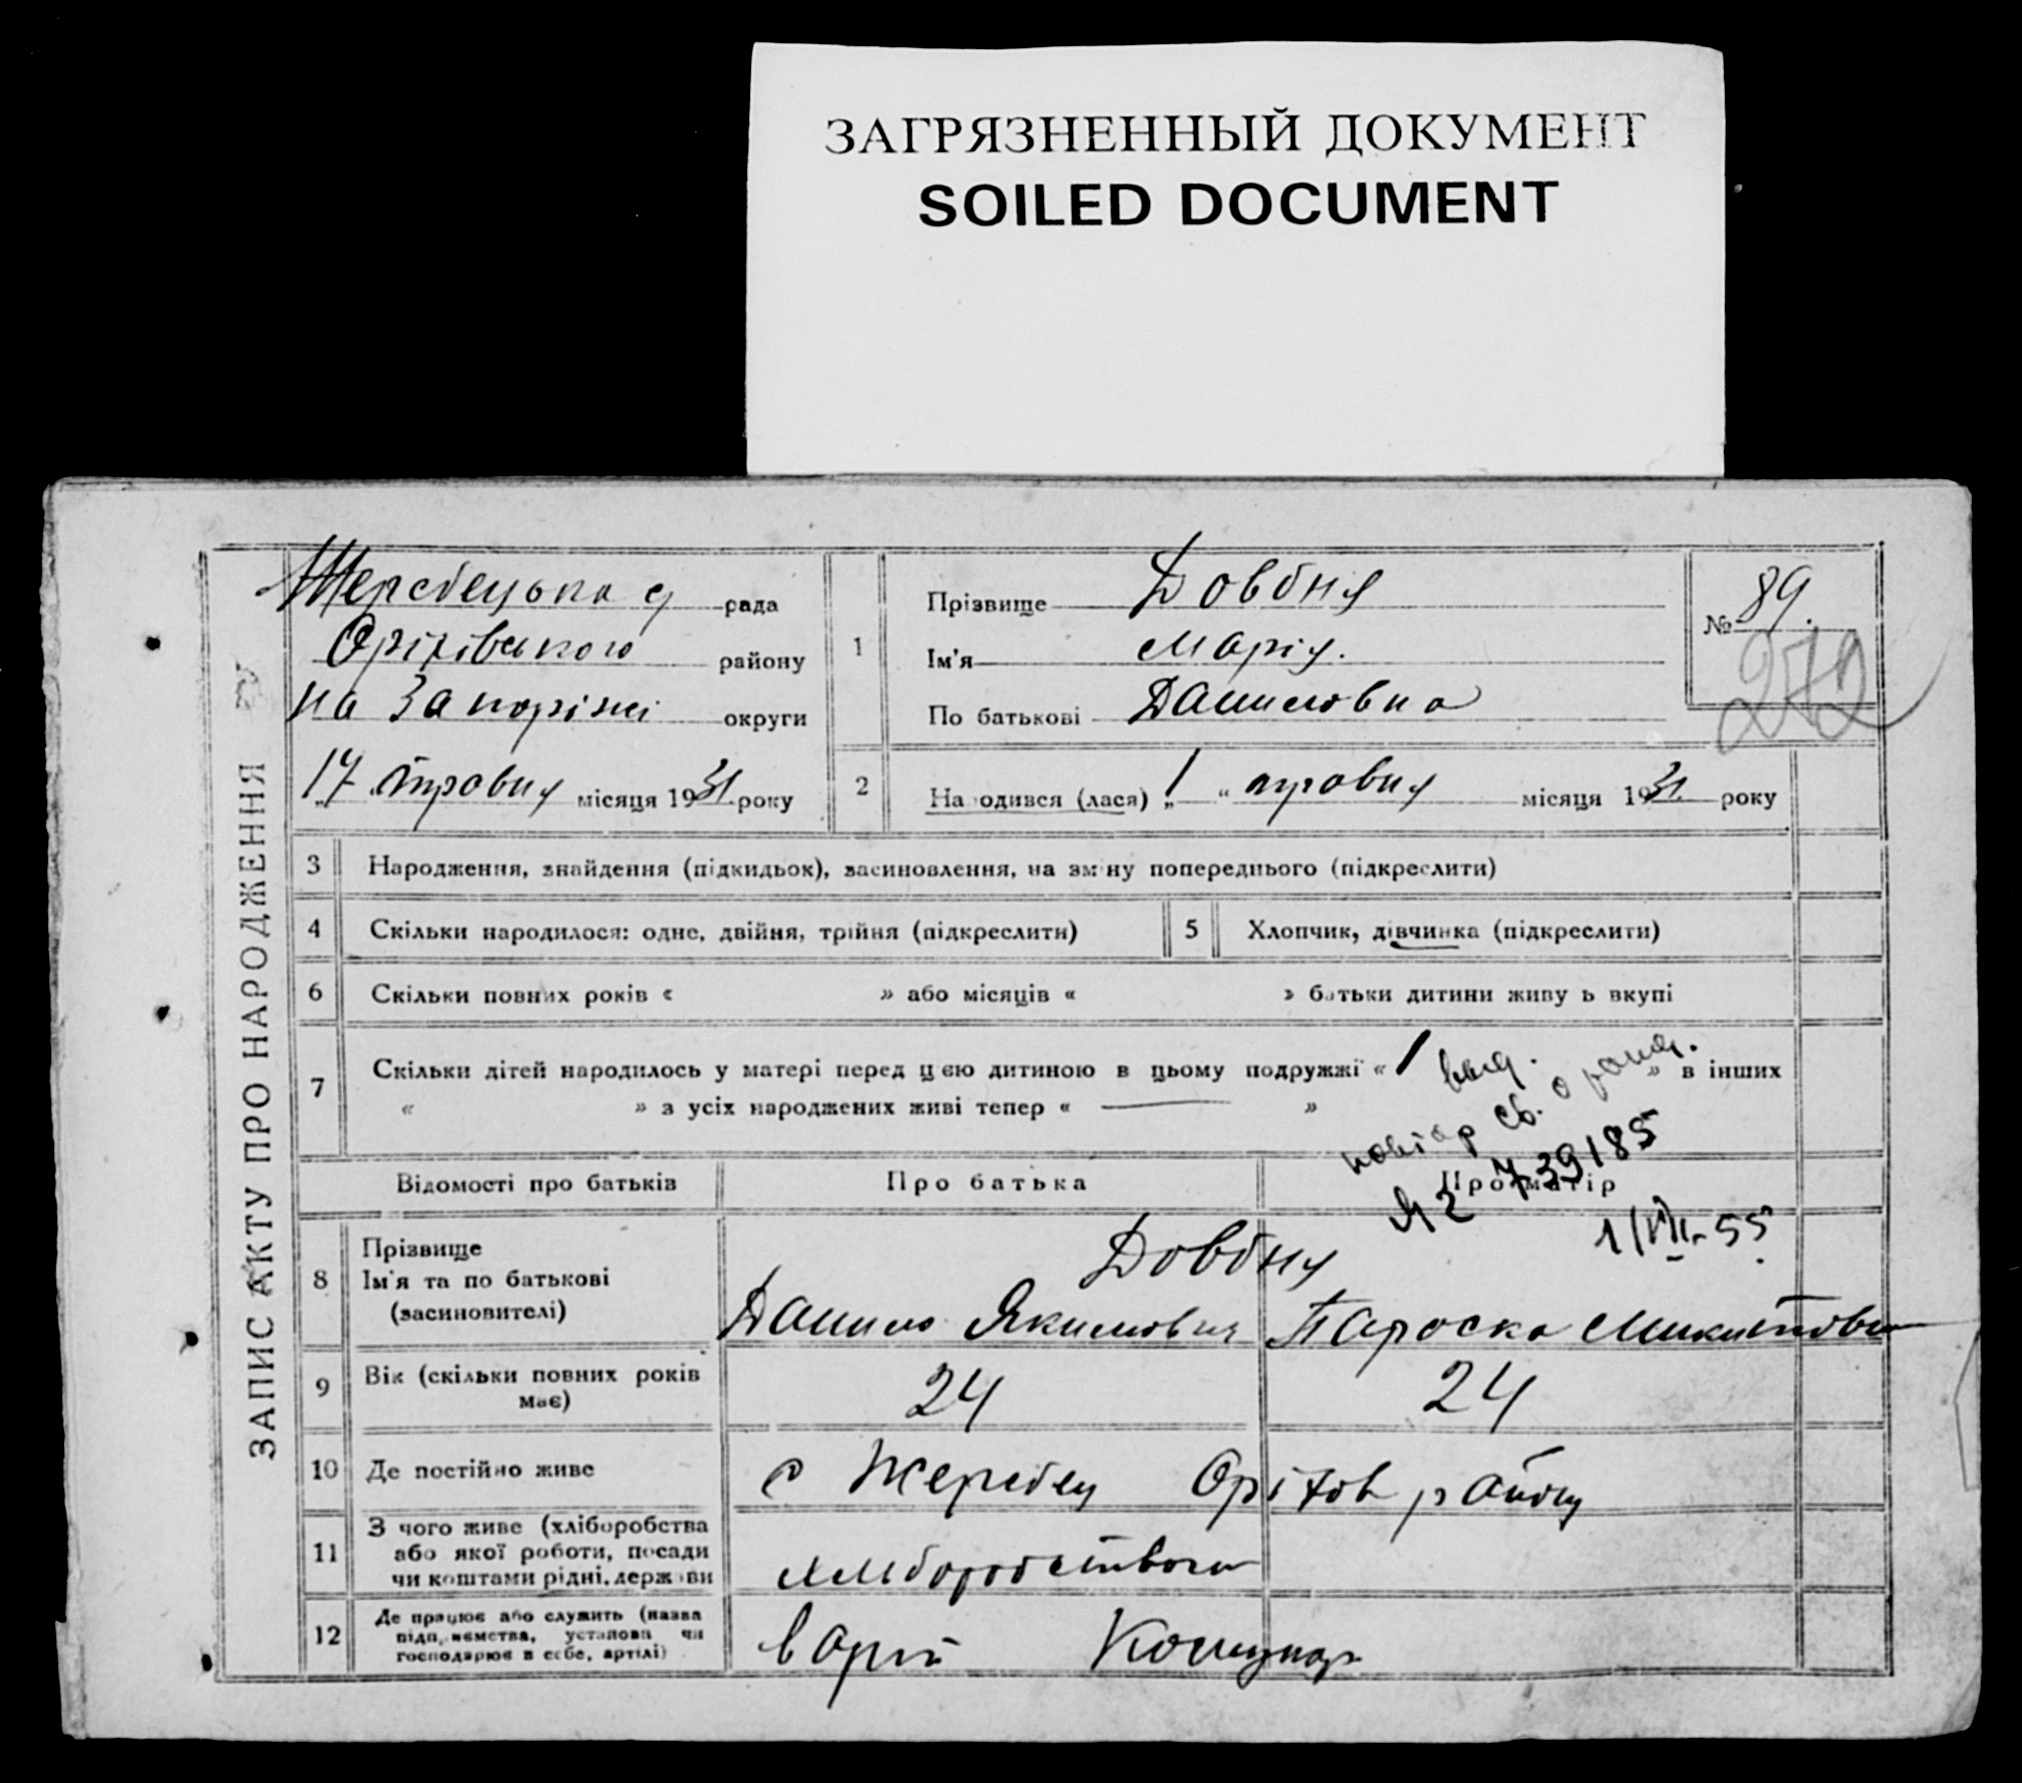 ЗАГРЯЗНЕННЫЙ ДОКУМЕНТ
SOILED DOCUMENT
ЗАПИС АКТУ ПРО НАРОДЖЕННЯ
Жеребецька с рада
Оріхівського району
на Запоріжі округи
17 травня місяця 1931 року
1
Прізвище Довбня
Ім'я Марія.
По батькові Даниловна
№ 89.
272
2 Народився (лася) „1“ травня місяця 1931 року
3 Народження, знайдення (підкидьок), засиновлення, на зміну попереднього (підкреслити)
4 Скільки народилося: одне, двійня, трійня (підкреслити)
5 Хлопчик, дівчинка (підкреслити)
6 Скільки повних років « » або місяців « » батьки дитини живуть вкупі
7 Скільки дітей народилось у матері перед цією дитиною в цьому подружжі « 1 » в інших
« » з усіх народжених живі тепер « — »
выд.
повтор св. о рожд.
739185
1/VII-55
Відомості про батьків Про батька Про матір
8 Прізвище
Ім'я та по батькові
(засиновителі)
Довбня
Данило Якимович Параска Микитовн
9 Вік (скільки повних років
має)
24 24
10 Де постійно живе
с Жеребец Оріхов району
11 З чого живе (хліборобства
або якої роботи, посади
чи коштами рідні, держави
хліборобством
12 Де працює або служить (назва
підприємства, установи чи
господарює в себе, артілі)
в Арті Комунар